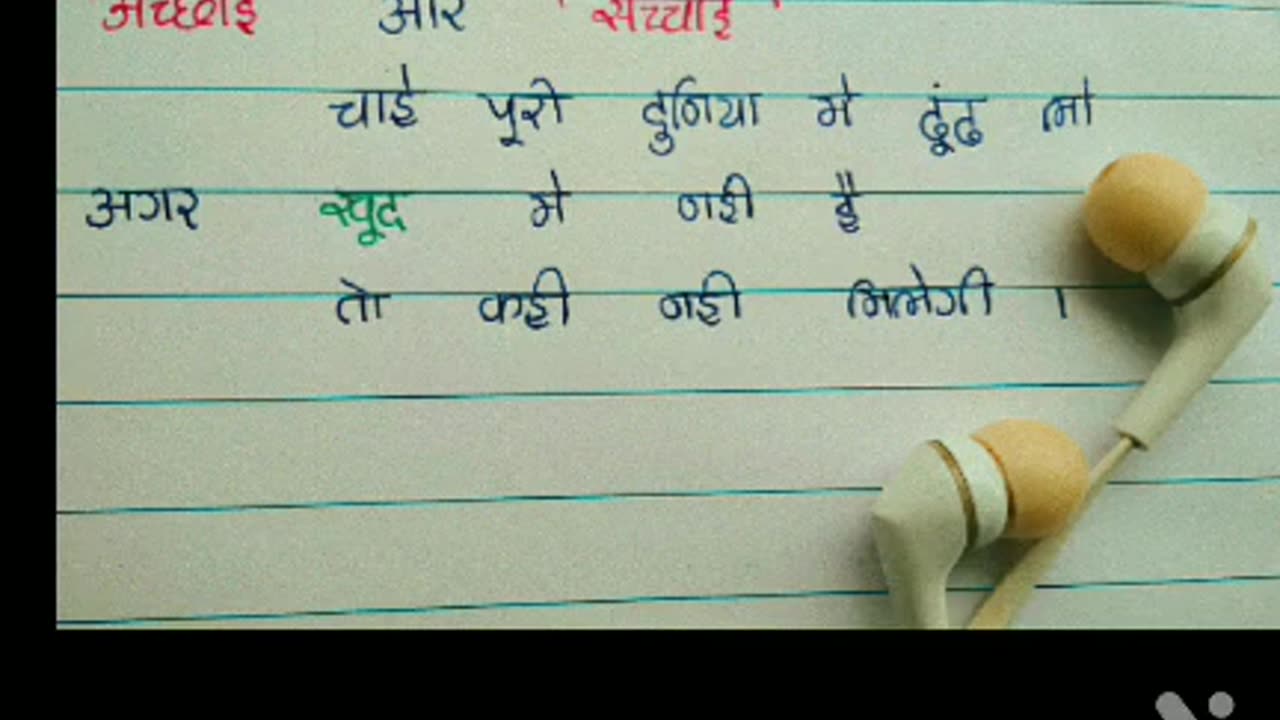 अच्छाई और ' सच्चाई '
चाहे पूरी दुनिया मे ढूंढ लो
अगर खुद मे नही है
तो कही नही मिलेगी ।